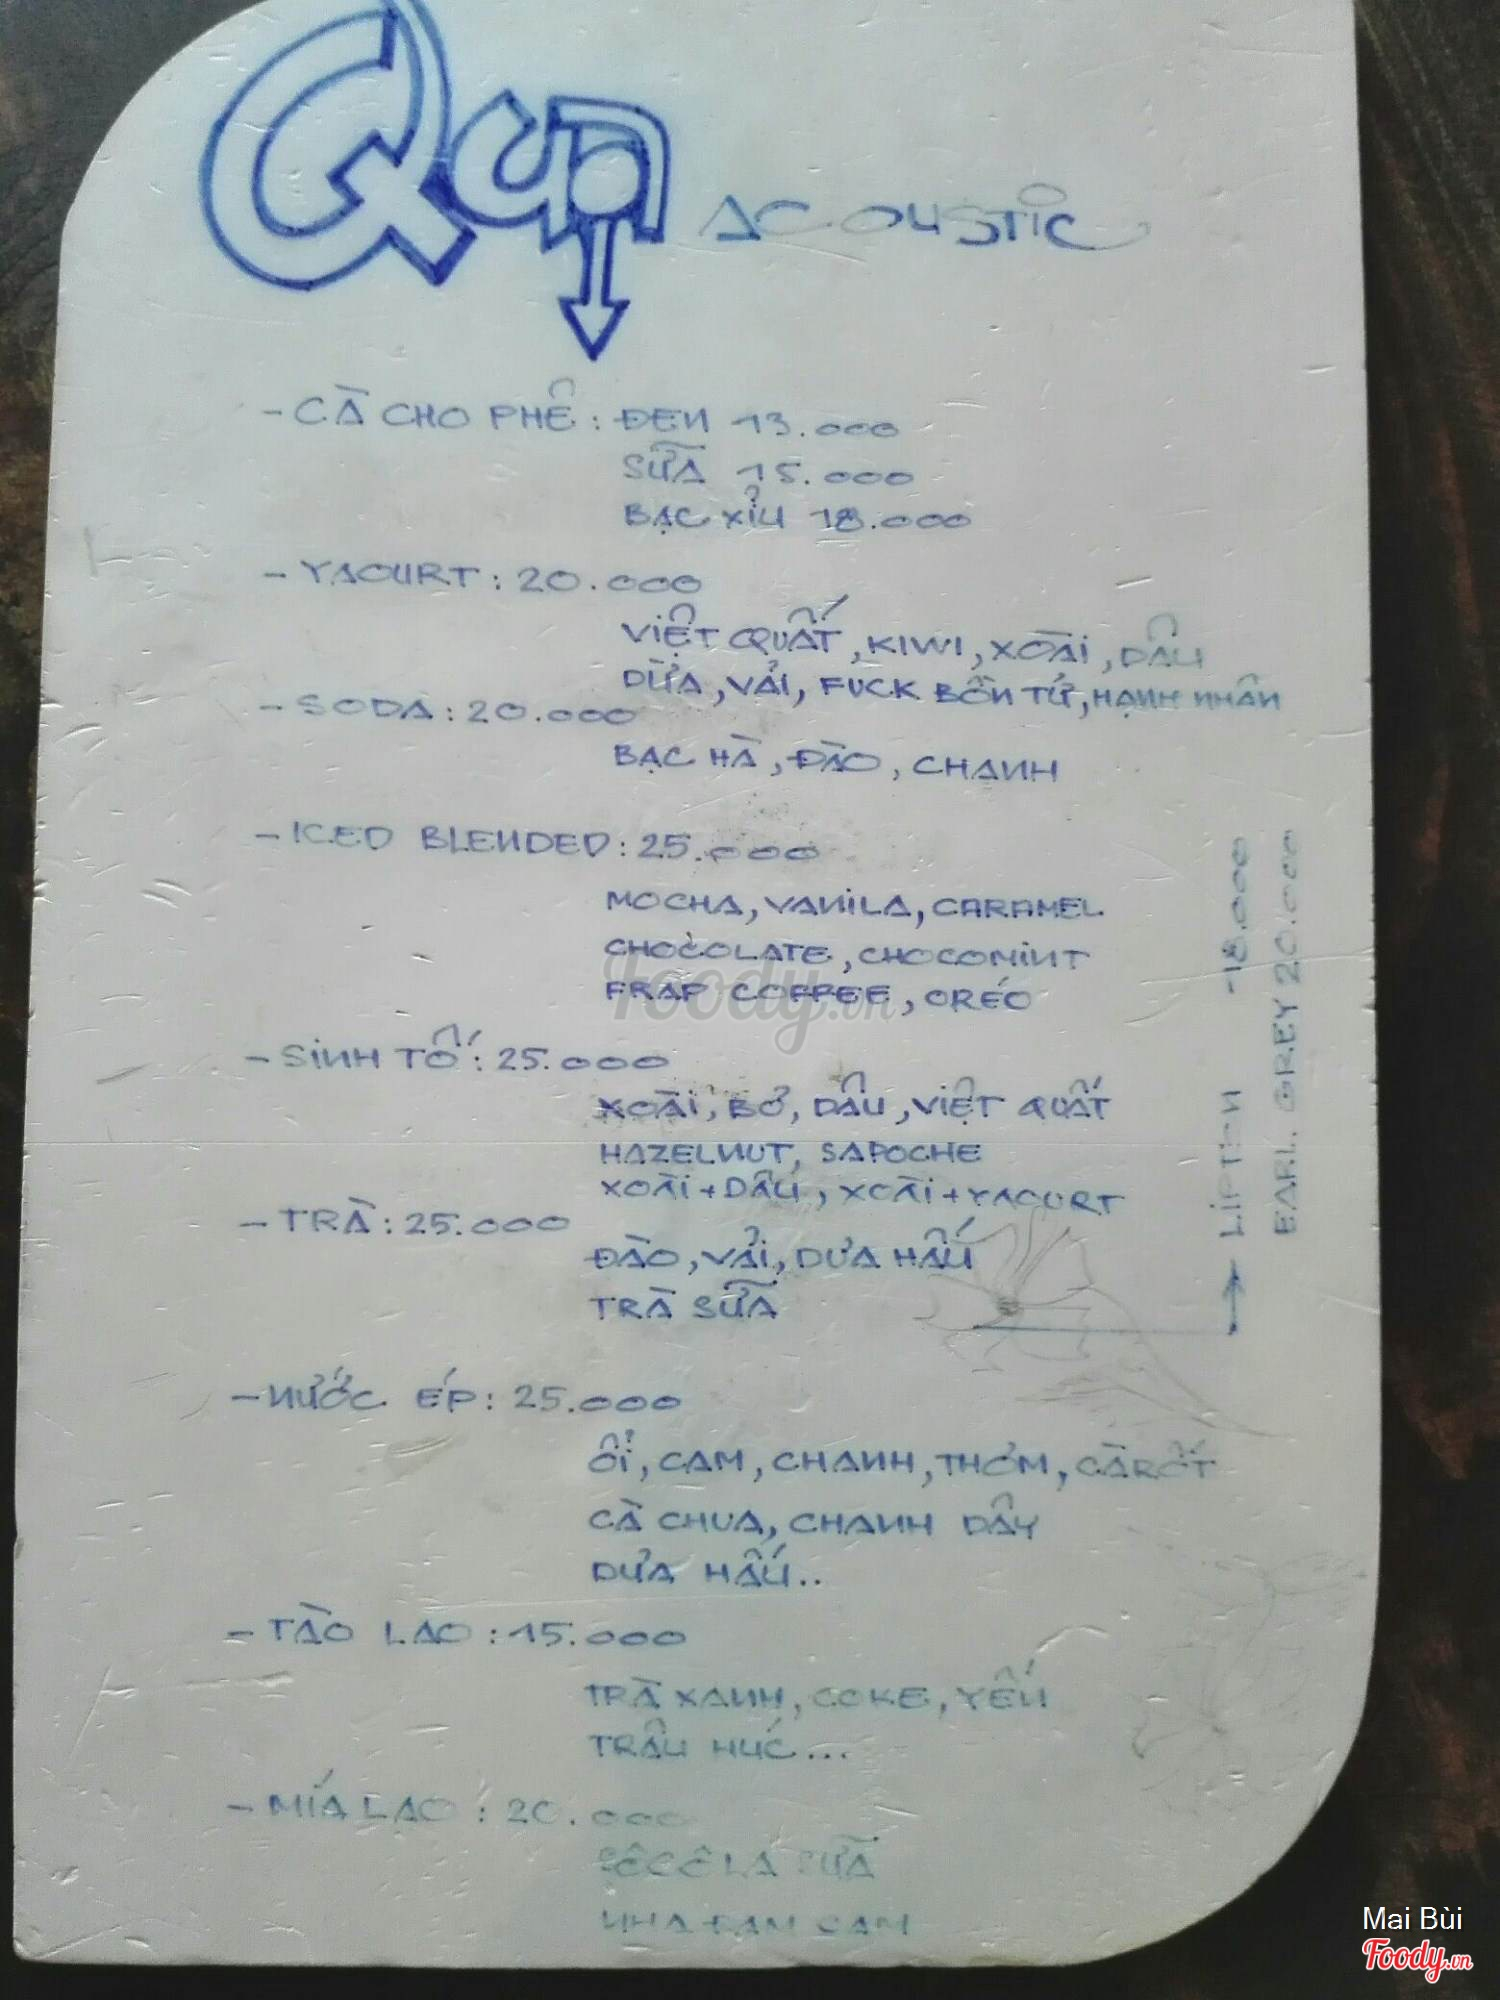 Quán ACOUSTIC
- CÀ CHO PHÊ : ĐEN 13.000
SỮA 15.000
BẠC XỈU 18.000
- YAOURT : 20.000
VIỆT QUẤT, KIWI, XOÀI, DÂU
DỪA, VẢI, FUCK BỒN TỨ, HẠNH NHÂN
- SODA : 20.000
BẠC HÀ, ĐÀO, CHANH
- ICED BLENDED : 25.000
MOCHA, VANILA, CARAMEL
CHOCOLATE, CHOCOMINT
FRAP COFFEE, ORÉO
- SINH TỐ : 25.000
XOÀI, BƠ, DÂU, VIỆT QUẤT
HAZELNUT, SAPOCHE
XOÀI + DÂU, XOÀI + YAOURT
- TRÀ : 25.000
ĐÀO, VẢI, DƯA HẤU
TRÀ SỮA
LIPTON - 18.000
EARL GREY 20.000
- NƯỚC ÉP : 25.000
ỔI, CAM, CHANH, THƠM, CÀ RỐT
CÀ CHUA, CHANH DÂY
DƯA HẤU..
- TÀO LAO : 15.000
TRÀ XANH, COKE, YẾN
TRÂU HÚC...
- MÍA LAO : 20.000
SÊCÊLA SỮA
NHA ĐAM CAM
Foody.vn
Mai Bùi
Foody.vn